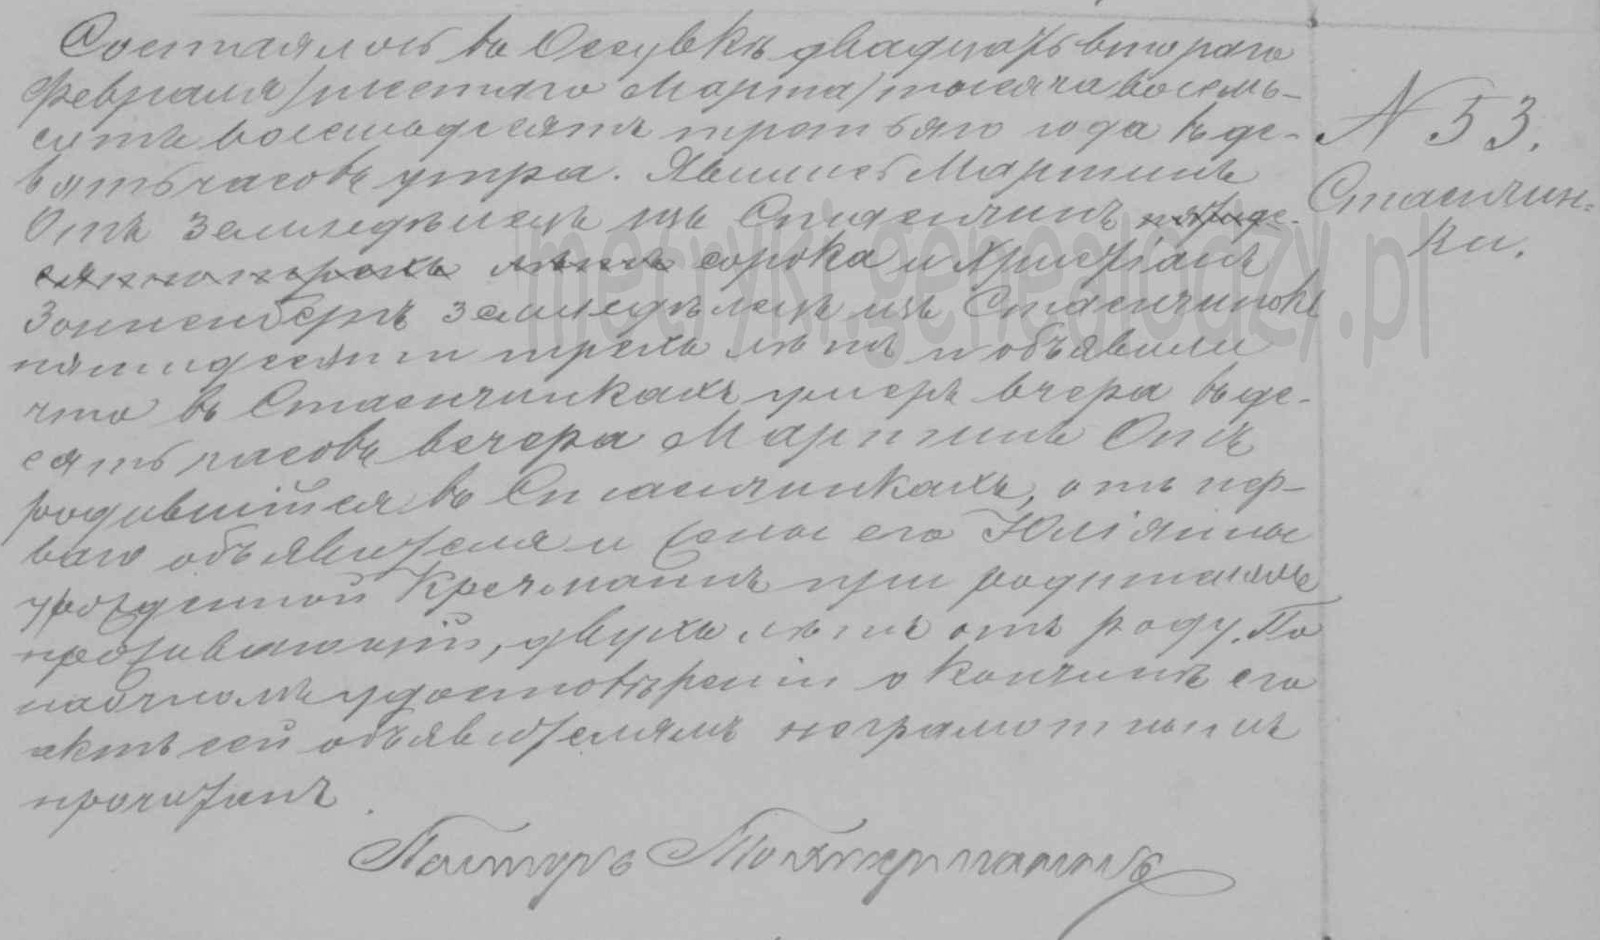 Состоялось въ Оссувкѣ двадцать втораго
Февраля /шестаго Марта/ тысяча восемь-
сотъ восемьдесятъ третьяго года въ де-
вять часовъ утра. Явились Мартинъ
Отъ земледѣлецъ изъ Стасичинъ
лѣтъ сорока и Христіанъ
Зонненбергъ земледѣлецъ изъ Стасичинокъ
пятидесяти трехъ лѣтъ и объявили
что въ Стасичинкахъ умеръ вчера въ де-
сять часовъ вечера Мартинъ Отъ
родившійся въ Стасичинкахъ, отъ пер-
ваго объявителя и жены его Юліянны
урожденной Кречманнъ при родителяхъ
проживающій, двухъ лѣтъ отъ роду. По
наочномъ удостовѣреніи о кончинѣ его
актъ сей объявителямъ неграмотнымъ
прочитанъ.
Пасторъ
N 53.
Стасичин-
ки.
metryki.genealodzy.pl